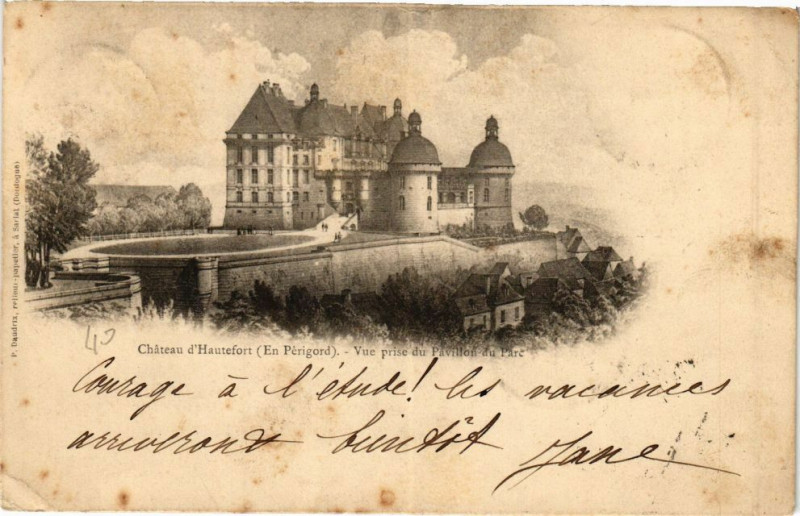 P. Daudrix, relieur-papetier, à Sarlat (Dordogne)
40
Château d'Hautefort (En Périgord). - Vue prise du Pavillon du Parc
Courage à l'étude! les vacances
arriveront bientôt
Jane